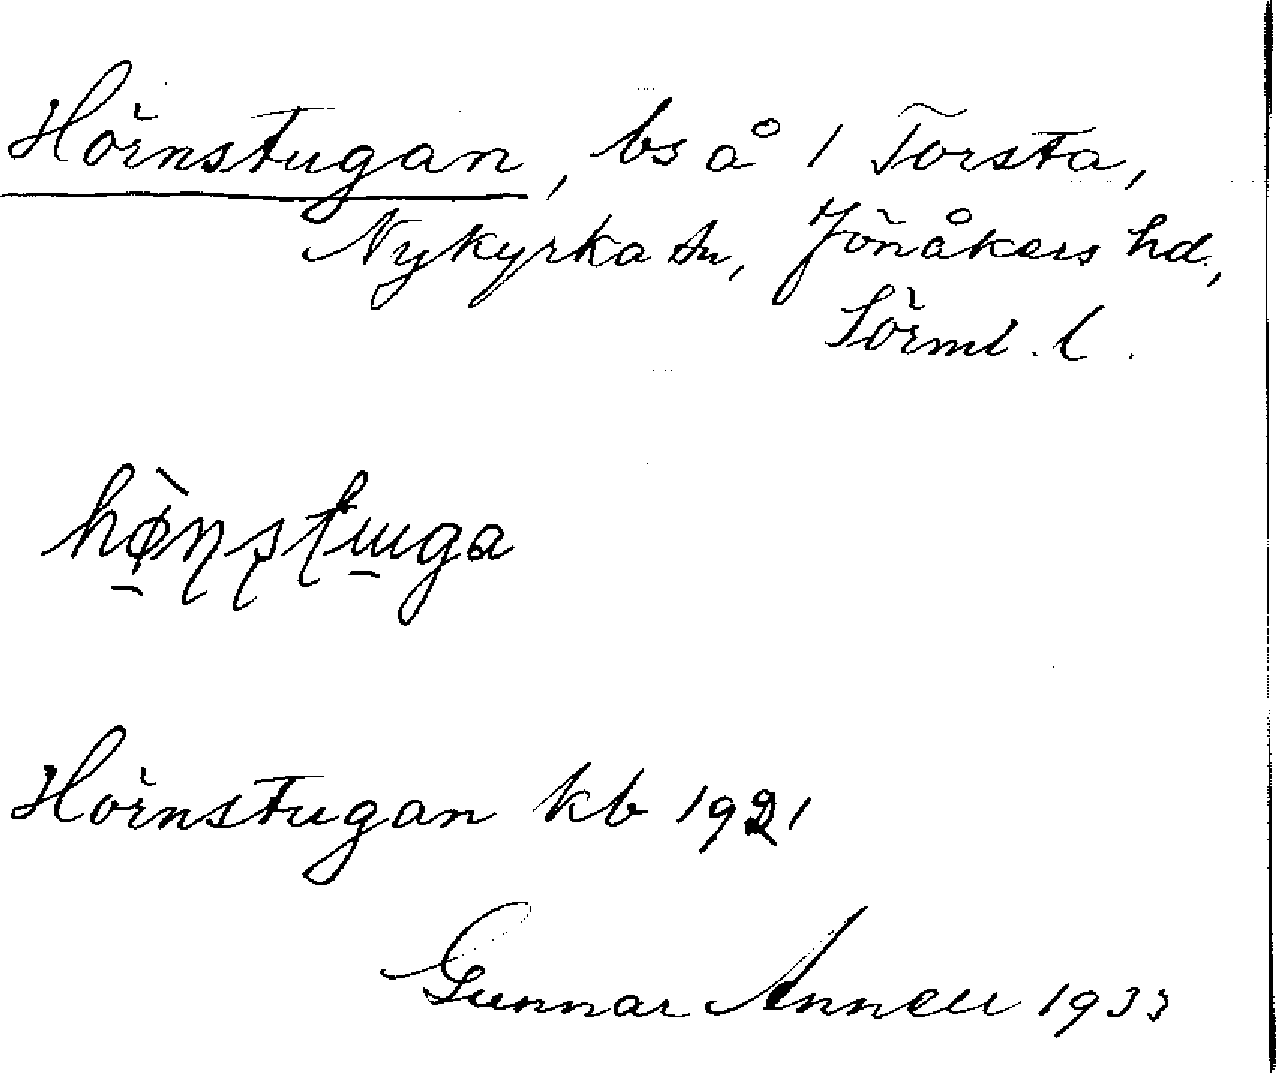 Hörnstugan, bs å 1 Torsta,
Nykyrka sn, Jönåkers hd.,
Sörml. l.
Hörnstugan kb 1921
Gunnar Annell 1933